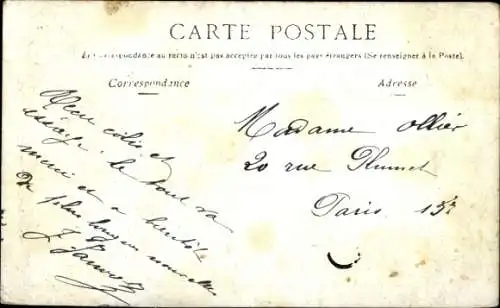 CARTE POSTALE
La correspondance au recto n'est pas acceptée par tous les pays étrangers (Se renseigner à la Poste).
Correspondance
Adresse
Reçu colis et
message, le tout va
merci et a bientôt
De plus longues nouvelles
Madame Ollier
20 rue Plumet
Paris 15e